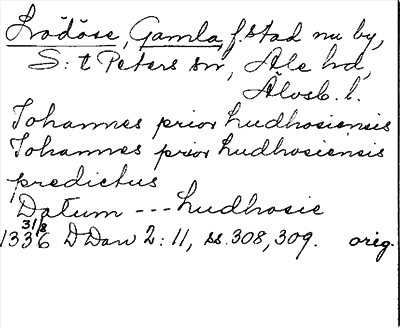 Lödöse, Gamla, f. stad nu by,
S:t Peters sn, Ale hd,
Älvsb. l.
Johannes prior Ludhosiensis
Johannes prior Ludhosiensis
predictus
Datum --- Ludhosie
1336 31/8 D Dan 2:11, ss. 308, 309. orig.